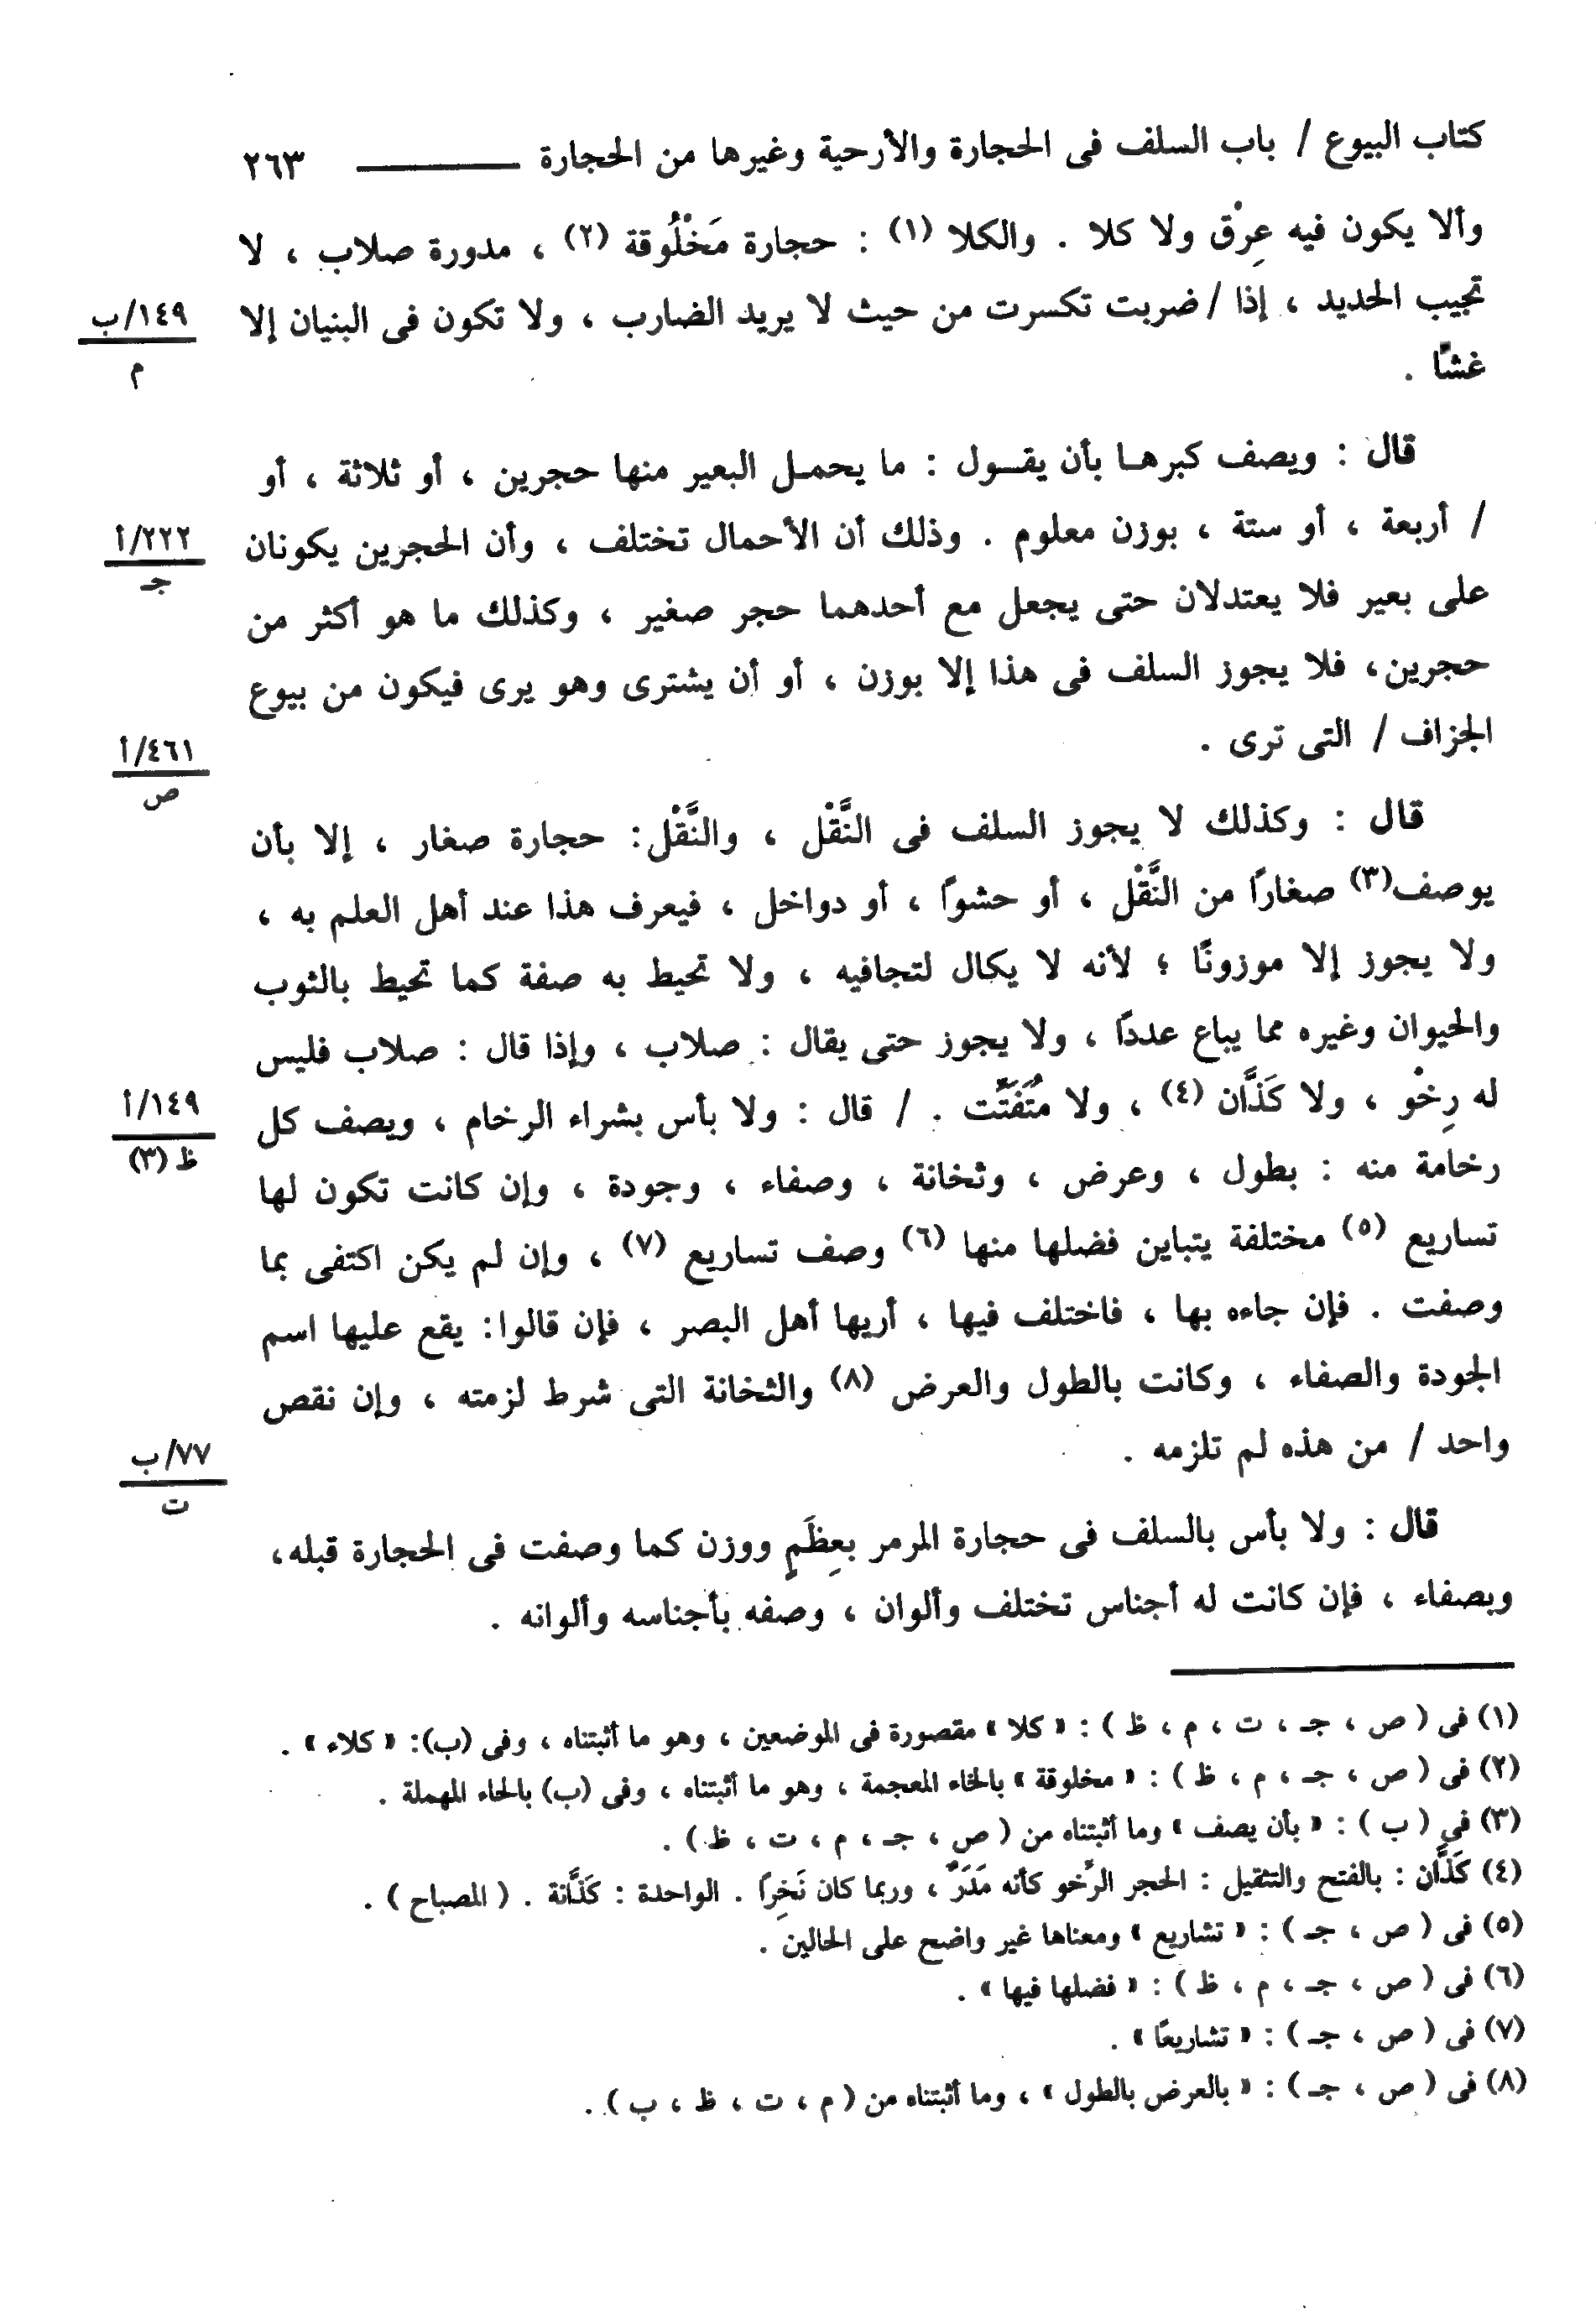 كتاب البيوع / باب السلف فى الحجارة والأرحية وغيرها من الحجارة ــــــــــ ٢٦٣
وألا يكون فيه عِرْق ولا كلا . والكلا (١) : حجارة مَخْلُوقة (٢) ، مدورة صلاب ، لا
تجيب الحديد ، إذا / ضربت تكسرت من حيث لا يريد الضارب ، ولا تكون فى البنيان إلا
١٤٩/ب
م
غشًا .
قال : ويصف كبرهـا بأن يقـول : ما يحمـل البعير منها حجرين ، أو ثلاثة ، أو
/ أربعة ، أو ستة ، بوزن معلوم . وذلك أن الأحمال تختلف ، وأن الحجرين يكونان
٢٢٢/أ
جـ
على بعير فلا يعتدلان حتى يجعل مع أحدهما حجر صغير ، وكذلك ما هو أكثر من
حجرين، فلا يجوز السلف فى هذا إلا بوزن ، أو أن يشترى وهو يرى فيكون من بيوع
الجزاف / التى ترى .
٤٦١/أ
ص
قال : وكذلك لا يجوز السلف فى النَّقْل ، والنَّقْل: حجارة صغار ، إلا بأن
يوصف(٣) صغارًا من النَّقْل ، أو حشوًا ، أو دواخل ، فيعرف هذا عند أهل العلم به ،
ولا يجوز إلا موزونًا ؛ لأنه لا يكال لتجافيه ، ولا تحيط به صفة كما تحيط بالثوب
والحيوان وغيره مما يباع عددًا ، ولا يجوز حتى يقال : صلاب ، وإذا قال : صلاب فليس
له رِخْو ، ولا كَذَّان (٤) ، ولا مُتَفَتِّت . / قال : ولا بأس بشراء الرخام ، ويصف كل
١٤٩/أ
ظ (٣)
رخامة منه : بطول ، وعرض ، وثخانة ، وصفاء ، وجودة ، وإن كانت تكون لها
تساريع (٥) مختلفة يتباين فضلها منها (٦) وصف تساريع (٧) ، وإن لم يكن اكتفى بما
وصفت . فإن جاءه بها ، فاختلف فيها ، أريها أهل البصر ، فإن قالوا: يقع عليها اسم
الجودة والصفاء ، وكانت بالطول والعرض (٨) والثخانة التى شرط لزمته ، وإن نقص
واحد / من هذه لم تلزمه .
٧٧/ب
ت
قال : ولا بأس بالسلف فى حجارة المرمر بعِظَمٍ ووزن كما وصفت فى الحجارة قبله،
وبصفاء ، فإن كانت له أجناس تختلف وألوان ، وصفه بأجناسه وألوانه .
(١) فى ( ص ، جـ ، ت ، م ، ظ ) : « كلا » مقصورة فى الموضعين ، وهو ما أثبتناه ، وفى (ب): « كلاء » .
(٢) فى ( ص ، جـ ، م ، ظ ) : « مخلوقة » بالخاء المعجمة ، وهو ما أثبتناه ، وفى (ب) بالحاء المهملة .
(٣) فى ( ب ) : « بأن يصف » وما أثبتناه من ( ص ، جـ ، م ، ت ، ظ ) .
(٤) كَذَّان : بالفتح والتثقيل : الحجر الرِّخو كأنه مَدَرٌ ، وربما كان نَخِرًا . الواحدة : كَذَّانة . ( المصباح ) .
(٥) فى ( ص ، جـ ) : « تشاريع » ومعناها غير واضح على الحالين .
(٦) فى ( ص ، جـ ، م ، ظ ) : « فضلها فيها » .
(٧) فى ( ص ، جـ ) : « تشاريعًا » .
(٨) فى ( ص ، جـ ) : « بالعرض بالطول » ، وما أثبتناه من ( م ، ت ، ظ ، ب ) .